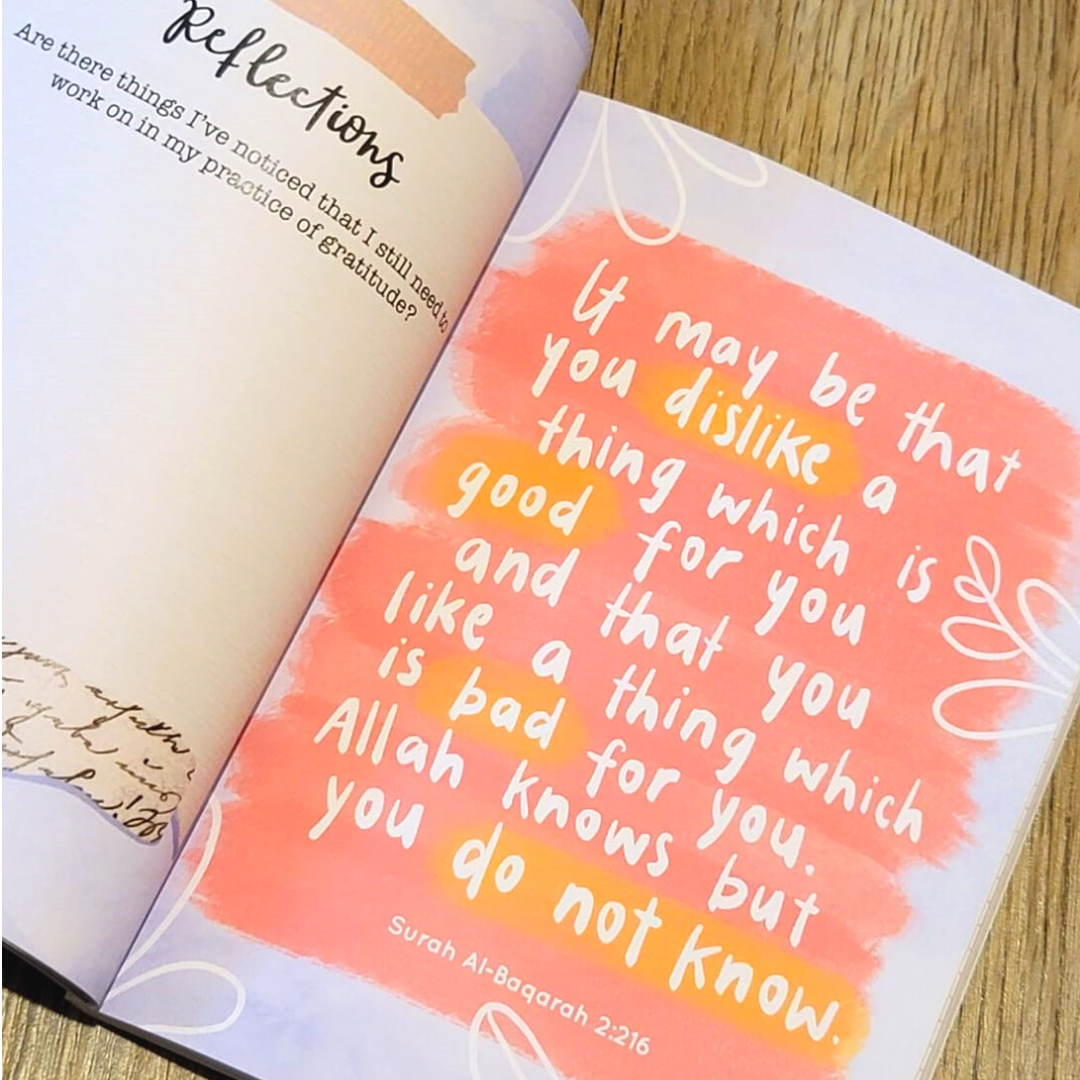 Reflections
Are there things I've noticed that I still need to
work on in my practice of gratitude?
It may be that
you dislike a
thing which is
good for you
and that you
like a thing which
is bad for you.
Allah knows but
you do not know.
Surah Al-Baqarah 2:216